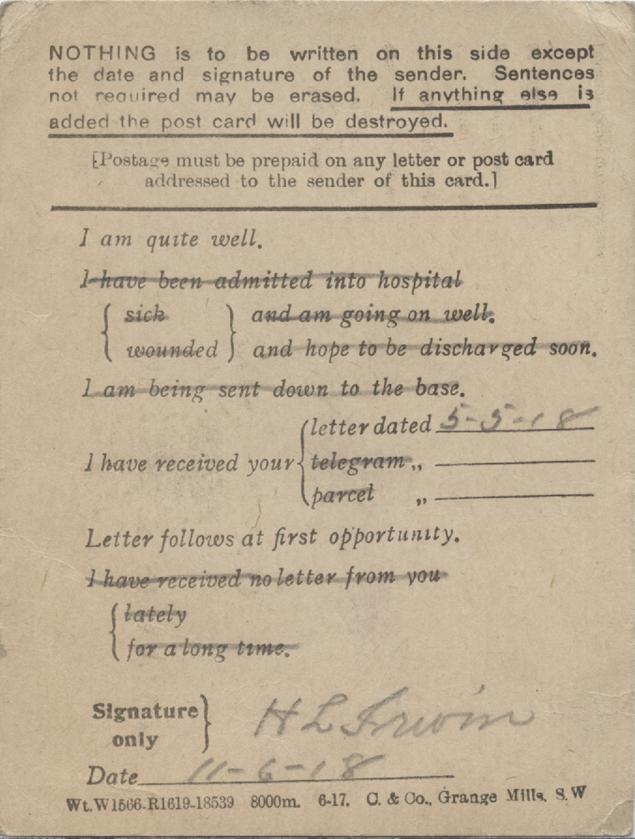 NOTHING is to be written on this side except
the date and signature of the sender. Sentences
not required may be erased. If anything else is
added the post card will be destroyed.
[Postage must be prepaid on any letter or post card
addressed to the sender of this card.]
I am quite well.
I have been admitted into hospital
{ sick } and am going on well.
{ wounded } and hope to be discharged soon.
I am being sent down to the base.
{ letter dated 5-5-18
I have received your { telegram „
{ parcel „
Letter follows at first opportunity.
I have received no letter from you
{ lately
{ for a long time.
Signature
only } H L Irwin
Date 11-6-18
Wt.W1566-R1619-18539 8000m. 6-17. C. & Co., Grange Mills, S.W